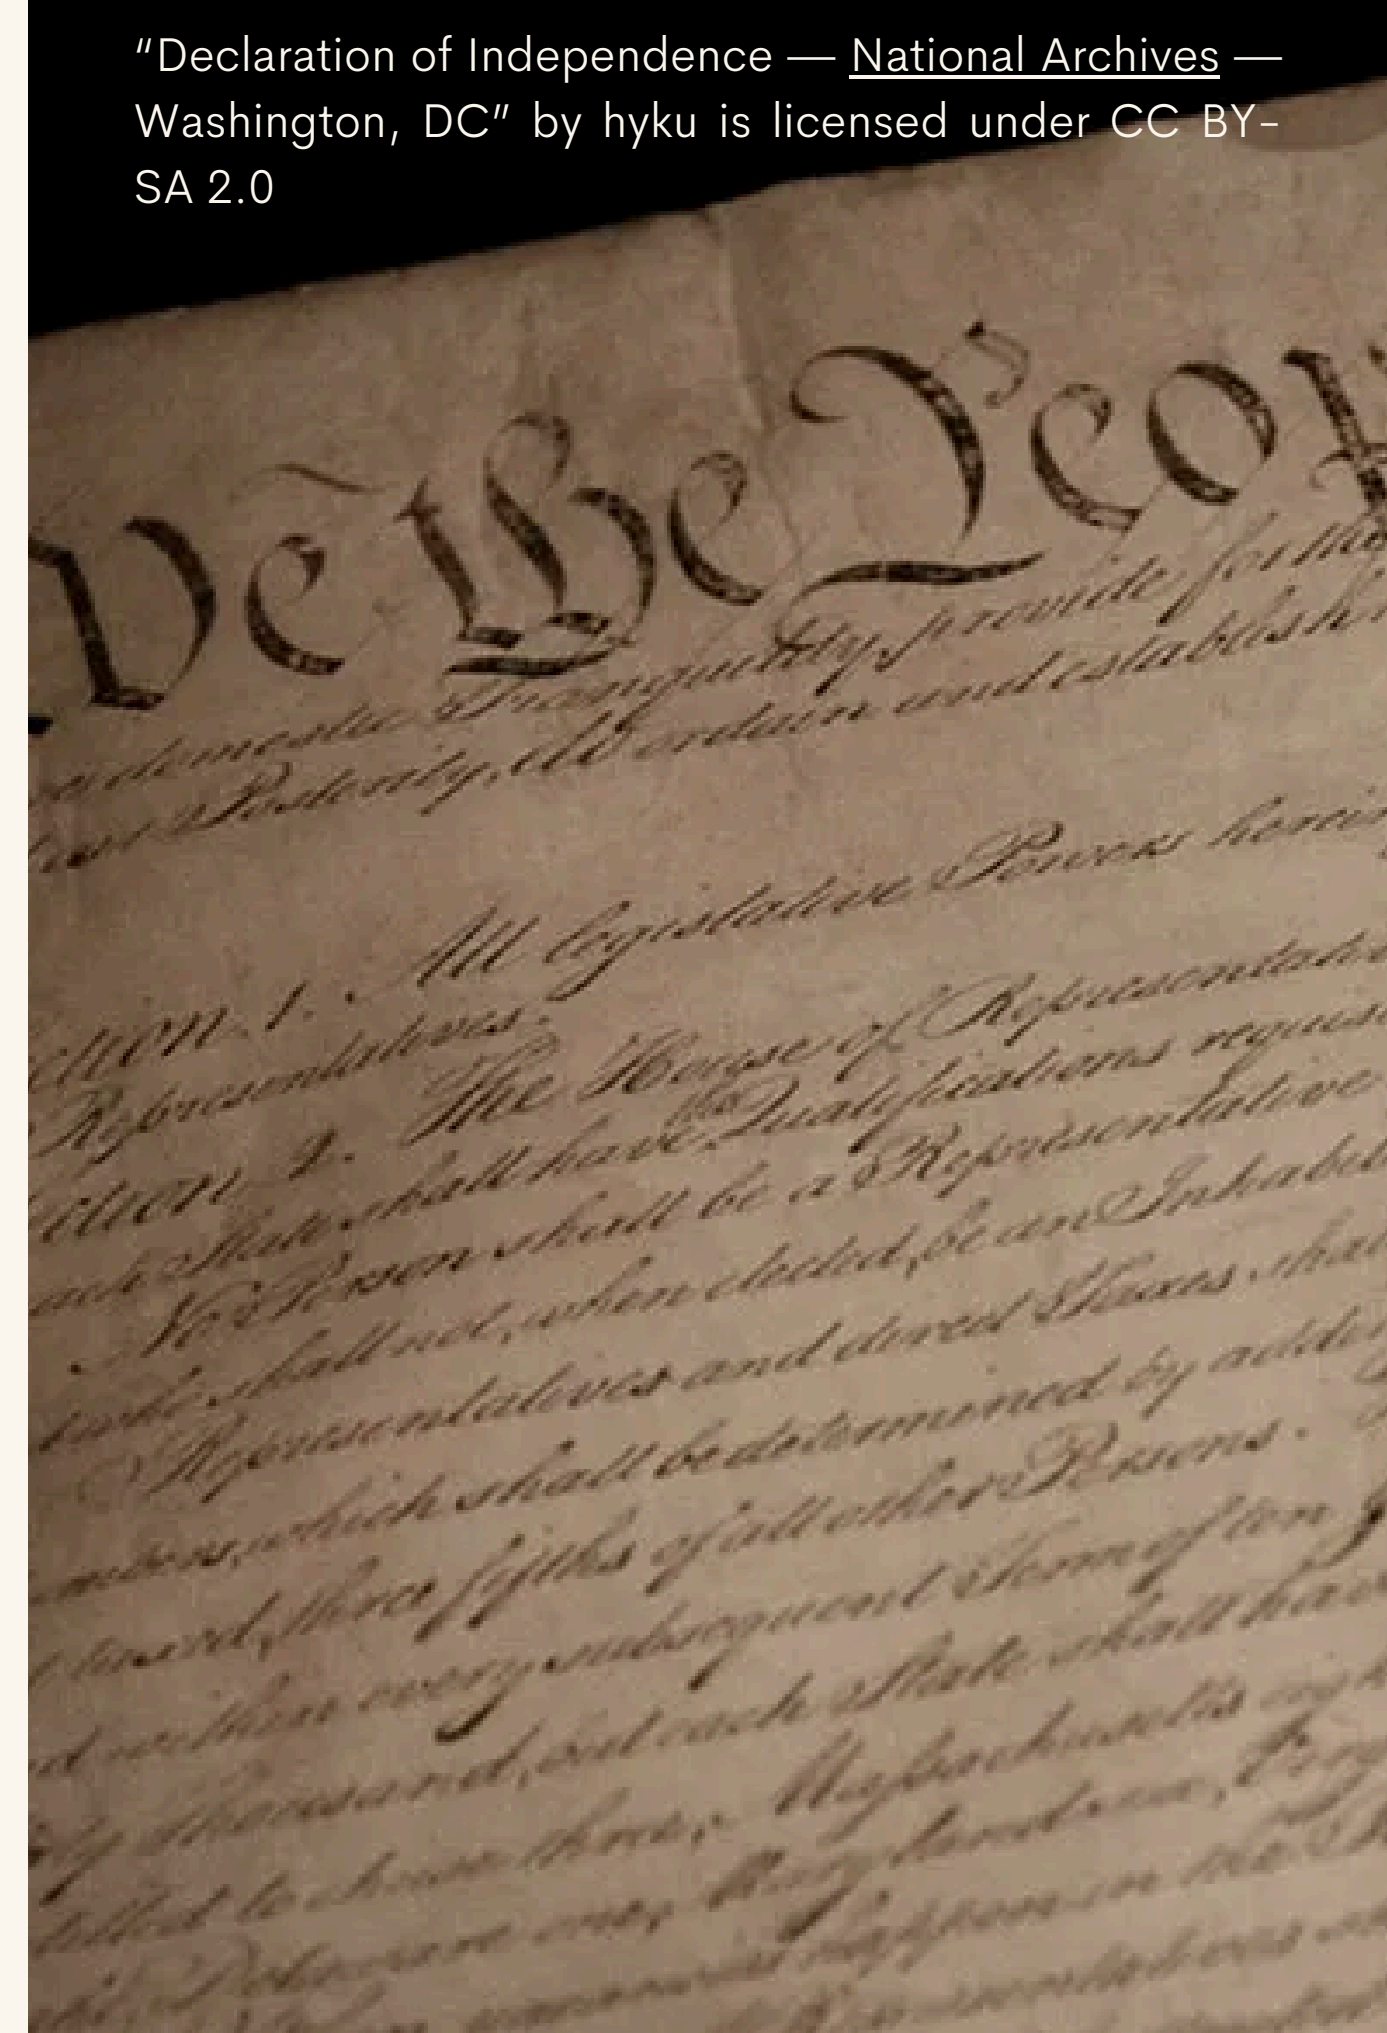 “Declaration of Independence — National Archives —
Washington, DC” by hyku is licensed under CC BY-
SA 2.0
We the Peop
domestic Tranquility, provide for the
Posterity, do ordain and establish
ction. 1. All legislative Powers herein
Representatives.
ection. 2. The House of Representati
State shall have the Qualifications requisi
No Person shall be a Representative
who shall not, when elected, be an Inhabit
Representatives and direct Taxes shal
which shall be determined by addin
three fifths of all other Persons.
within every subsequent Term of ten
thousand, but each State shall hav
to chuse three, Massachusetts eigh
Delaware one, Maryland six, Virg
happen in the